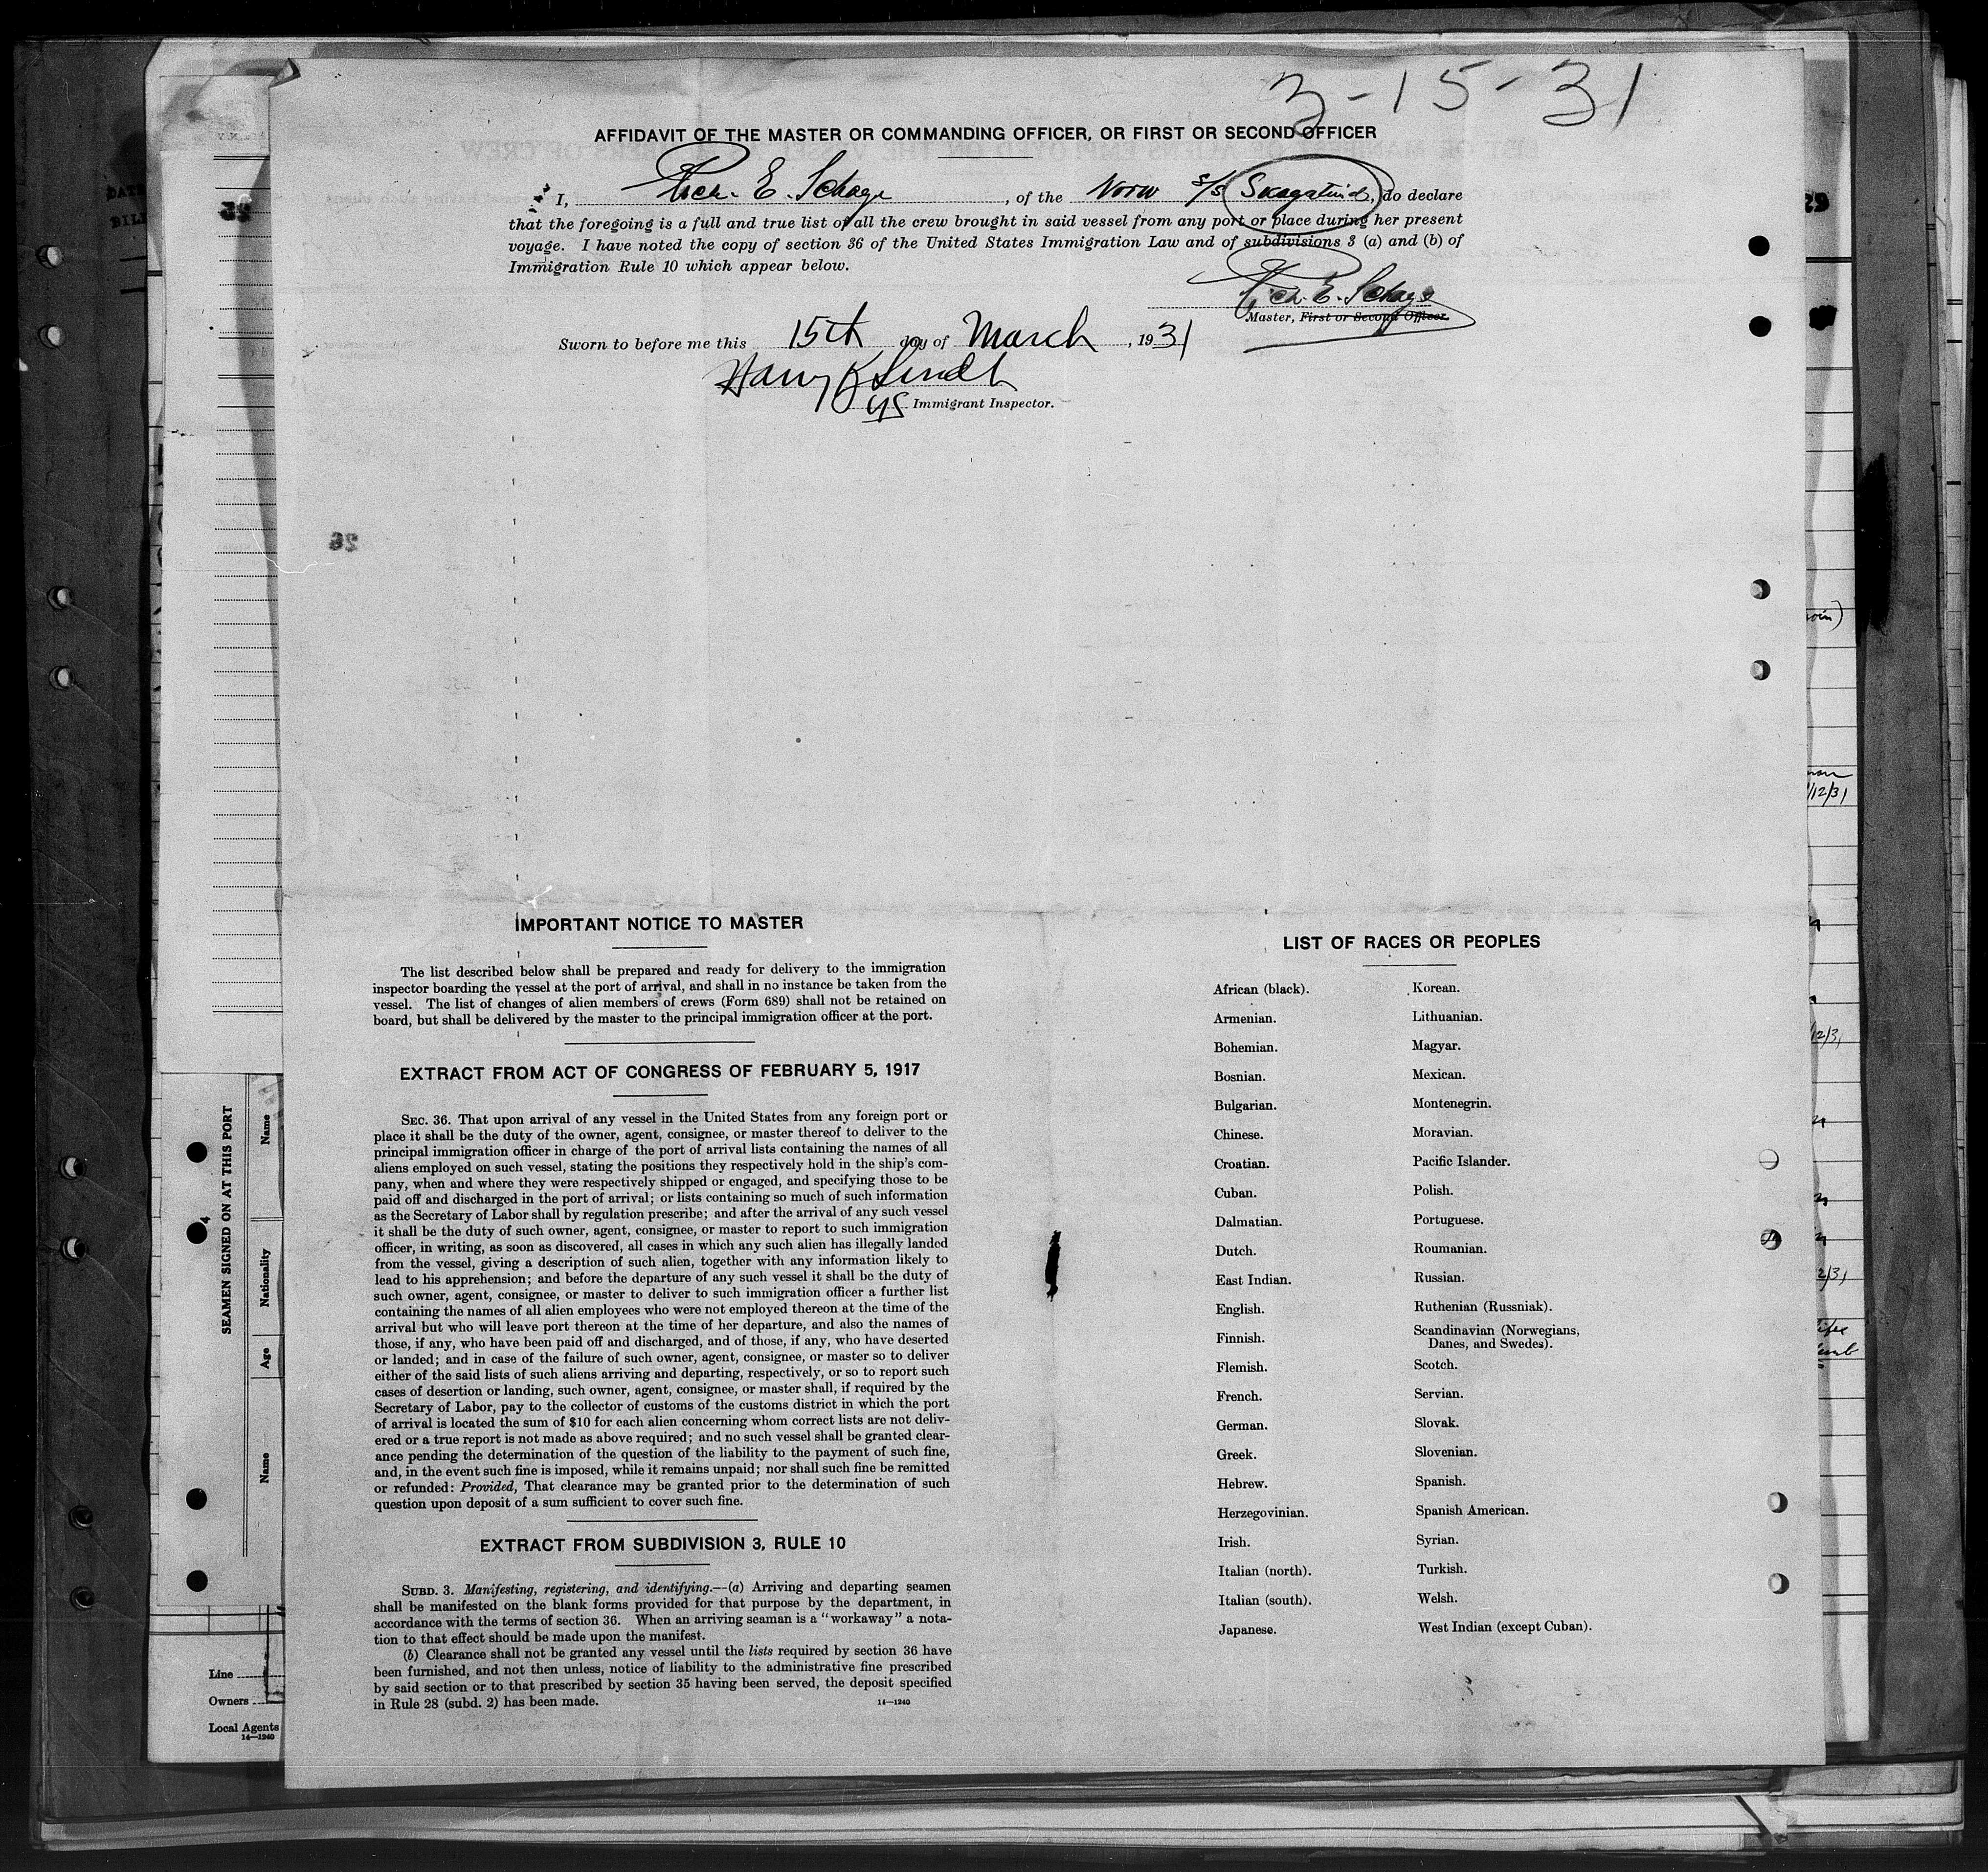 3-15-31
AFFIDAVIT OF THE MASTER OR COMMANDING OFFICER, OR FIRST OR SECOND OFFICER
I, Rich. E. Schage, of the Norw s/s Skagatind, do declare
that the foregoing is a full and true list of all the crew brought in said vessel from any port or place during her present
voyage. I have noted the copy of section 36 of the United States Immigration Law and of subdivisions 3 (a) and (b) of
Immigration Rule 10 which appear below.
Rich. E. Schage
Master, First or Second Officer.
Sworn to before me this 15th day of March, 1931
Harry K
US Immigrant Inspector.
25
26
IMPORTANT NOTICE TO MASTER
The list described below shall be prepared and ready for delivery to the immigration
inspector boarding the vessel at the port of arrival, and shall in no instance be taken from the
vessel. The list of changes of alien members of crews (Form 689) shall not be retained on
board, but shall be delivered by the master to the principal immigration officer at the port.
EXTRACT FROM ACT OF CONGRESS OF FEBRUARY 5, 1917
SEC. 36. That upon arrival of any vessel in the United States from any foreign port or
place it shall be the duty of the owner, agent, consignee, or master thereof to deliver to the
principal immigration officer in charge of the port of arrival lists containing the names of all
aliens employed on such vessel, stating the positions they respectively hold in the ship's com-
pany, when and where they were respectively shipped or engaged, and specifying those to be
paid off and discharged in the port of arrival; or lists containing so much of such information
as the Secretary of Labor shall by regulation prescribe; and after the arrival of any such vessel
it shall be the duty of such owner, agent, consignee, or master to report to such immigration
officer, in writing, as soon as discovered, all cases in which any such alien has illegally landed
from the vessel, giving a description of such alien, together with any information likely to
lead to his apprehension; and before the departure of any such vessel it shall be the duty of
such owner, agent, consignee, or master to deliver to such immigration officer a further list
containing the names of all alien employees who were not employed thereon at the time of the
arrival but who will leave port thereon at the time of her departure, and also the names of
those, if any, who have been paid off and discharged, and of those, if any, who have deserted
or landed; and in case of the failure of such owner, agent, consignee, or master so to deliver
either of the said lists of such aliens arriving and departing, respectively, or so to report such
cases of desertion or landing, such owner, agent, consignee, or master shall, if required by the
Secretary of Labor, pay to the collector of customs of the customs district in which the port
of arrival is located the sum of $10 for each alien concerning whom correct lists are not deliv-
ered or a true report is not made as above required; and no such vessel shall be granted clear-
ance pending the determination of the question of the liability to the payment of such fine,
and, in the event such fine is imposed, while it remains unpaid; nor shall such fine be remitted
or refunded: Provided, That clearance may be granted prior to the determination of such
question upon deposit of a sum sufficient to cover such fine.
EXTRACT FROM SUBDIVISION 3, RULE 10
SUBD. 3. Manifesting, registering, and identifying.—(a) Arriving and departing seamen
shall be manifested on the blank forms provided for that purpose by the department, in
accordance with the terms of section 36. When an arriving seaman is a "workaway" a nota-
tion to that effect should be made upon the manifest.
(b) Clearance shall not be granted any vessel until the lists required by section 36 have
been furnished, and not then unless, notice of liability to the administrative fine prescribed
by said section or to that prescribed by section 35 having been served, the deposit specified
in Rule 28 (subd. 2) has been made.
14—1240
LIST OF RACES OR PEOPLES
African (black).
Armenian.
Bohemian.
Bosnian.
Bulgarian.
Chinese.
Croatian.
Cuban.
Dalmatian.
Dutch.
East Indian.
English.
Finnish.
Flemish.
French.
German.
Greek.
Hebrew.
Herzegovinian.
Irish.
Italian (north).
Italian (south).
Japanese.
Korean.
Lithuanian.
Magyar.
Mexican.
Montenegrin.
Moravian.
Pacific Islander.
Polish.
Portuguese.
Roumanian.
Russian.
Ruthenian (Russniak).
Scandinavian (Norwegians,
Danes, and Swedes).
Scotch.
Servian.
Slovak.
Slovenian.
Spanish.
Spanish American.
Syrian.
Turkish.
Welsh.
West Indian (except Cuban).
SEAMEN SIGNED ON AT THIS PORT
Name
Nationality
Age
Name
4
Line
Owners
Local Agents
14—1240